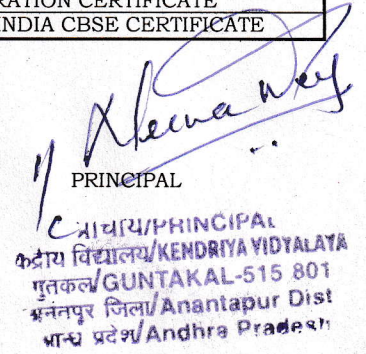 RATION CERTIFICATE
INDIA CBSE CERTIFICATE
PRINCIPAL
प्राचार्य/PRINCIPAL
केंद्रीय विद्यालय/KENDRIYA VIDYALAYA
गुंतकल/GUNTAKAL-515 801
अनंतपुर जिला/Anantapur Dist
आन्ध्र प्रदेश/Andhra Pradesh